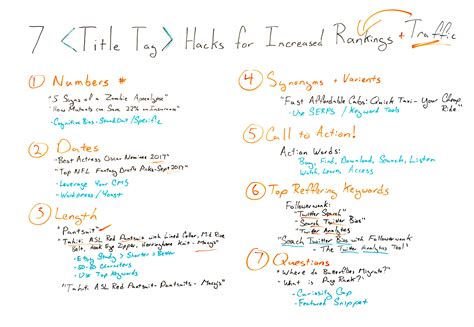 7 <Title Tag> Hacks for Increased Rankings + Traffic
① Numbers #
"5 Signs of a Zombie Apocalypse"
"How Mutants can Save 22% on Insurance"
- Cognitive Bias - Stand Out / Specific
② Dates
- "Best Actress Oscar Nominee 2017"
- "Top NFL Fantasy Draft Picks - Sept 2017"
- Leverage Your CMS
- Wordpress / Yoast
③ Length
"Pantsuit"
"Tahiti ASL Red Pantsuit with Lined Collar, Mid Rise
Belt, Hook Eye Zipper, Herringbone Knit - Macys"
- Etsy Study > Shorter = Better
- 50-60 Characters
- Use Top Keywords
"Tahiti ASL Red Pantsuit - Pantsuits - Macys"
④ Synonyms + Varients
"Fast Affordable Cabs: Quick Taxi - Your Cheap
Ride"
- Use SERPs / Keyword Tools
⑤ Call to Action!
Action Words:
Buy, Find, Download, Search, Listen
Watch, Learn, Access
⑥ Top Reffering Keywords
Followerwonk:
- "Twitter Search"
- "Search Twitter Bios"
- "Twitter Analytics"
"Search Twitter Bios with Followerwonk
- The Twitter Analytics Tool"
⑦ Questions
"Where do Butterflies Migrate?"
"What is Page Rank?"
- Curiosity Gap
- Featured Snippet